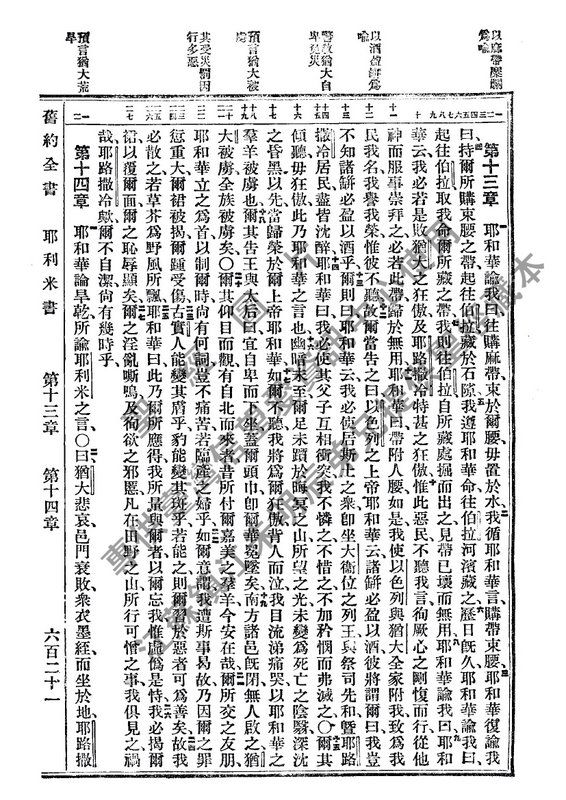 以酒盛缾爲喻
警教猶大自卑免災
預言猶大被虜
其受災罰因行多惡
預言猶大荒旱
第十三章 耶和華諭我曰往購麻帶束於爾腰毋置於水我循耶和華言購帶束腰耶和華復諭我
曰持爾所購束腰之帶起往伯拉藏於石隙我遵耶和華命往伯拉河濱藏之歷日旣久耶和華諭我曰
起往伯拉取我命爾所藏之帶我則往伯拉自所藏處掘而出之見帶已壞而無用耶和華諭我曰耶和
華云我必若是敗猶大之狂傲及耶路撒冷特甚之狂傲惟此惡民不聽我言徇厥心之剛愎而行從他
神而服事崇拜之必若此帶歸於無用耶和華曰帶附人腰如是我使以色列與猶大全家附我致爲我
民我名我譽我榮惟彼不聽故爾當告之曰以色列之上帝耶和華云諸缾必盈以酒彼將謂爾曰我豈
不知諸缾必盈以酒乎爾則曰耶和華云我必使居斯土之衆卽坐大衛位之列王與祭司先知曁耶路
撒冷居民盡皆沈醉耶和華曰我必使其父子互相衝突我不憐之不惜之不加矜憫而弗滅之○爾其
傾聽毋狂傲此乃耶和華之言也幽暗未至爾足未躓於晦冥之山所望之光未變爲死亡之陰翳深沈
之昏黑以先當歸榮於爾上帝耶和華如爾不聽我將爲爾狂傲背人而泣我目流涕痛哭以耶和華之
羣羊被虜也爾其告王與太后曰宜自卑而坐蓋爾頭巾卽爾華冕墜矣南方諸邑旣閉無人啟之猶
大被虜全族被虜矣○爾其仰目而觀有自北而來者昔所付爾嘉美之羣羊今安在哉爾所交之友朋
耶和華立之爲首以制爾時尚有何詞豈不痛苦若臨產之婦乎如爾意謂我遭斯事曷故乃因爾之罪
愆重大爾裾被揭爾踵受傷古實人能變其膚乎豹能變其斑乎若能之則爾習於惡者可爲善矣故我
必散之若草芥爲野風所飄耶和華曰此乃爾所應得我所量與爾者以爾忘我惟虛僞是恃我必揭爾
裾以覆爾面爾之恥辱顯矣爾之淫亂嘶鳴及狥欲之邪慝凡在田野之山所行可憎之事我俱見之禍
哉耶路撒冷歟爾不自潔尚有幾時乎
第十四章 耶和華諭旱乾所諭耶利米之言○曰猶大悲哀邑門衰敗衆衣墨絰而坐於地耶路撒
舊約全書 耶利米書 第十三章 第十四章 六百二十一